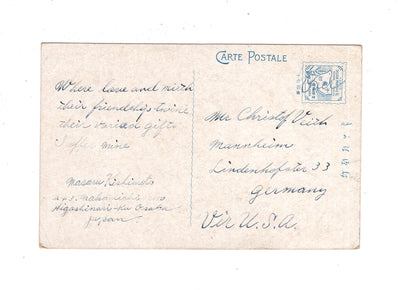 CARTE POSTALE
Where love and mirth
their friendships twine
their varied gifts
I offer mine
Masaru Kishimoto
Higashinari-Ku Osaka
Japan
Mr Christof Veith
Mannheim
Lindenhofster 33
Germany
Via U.S.A.